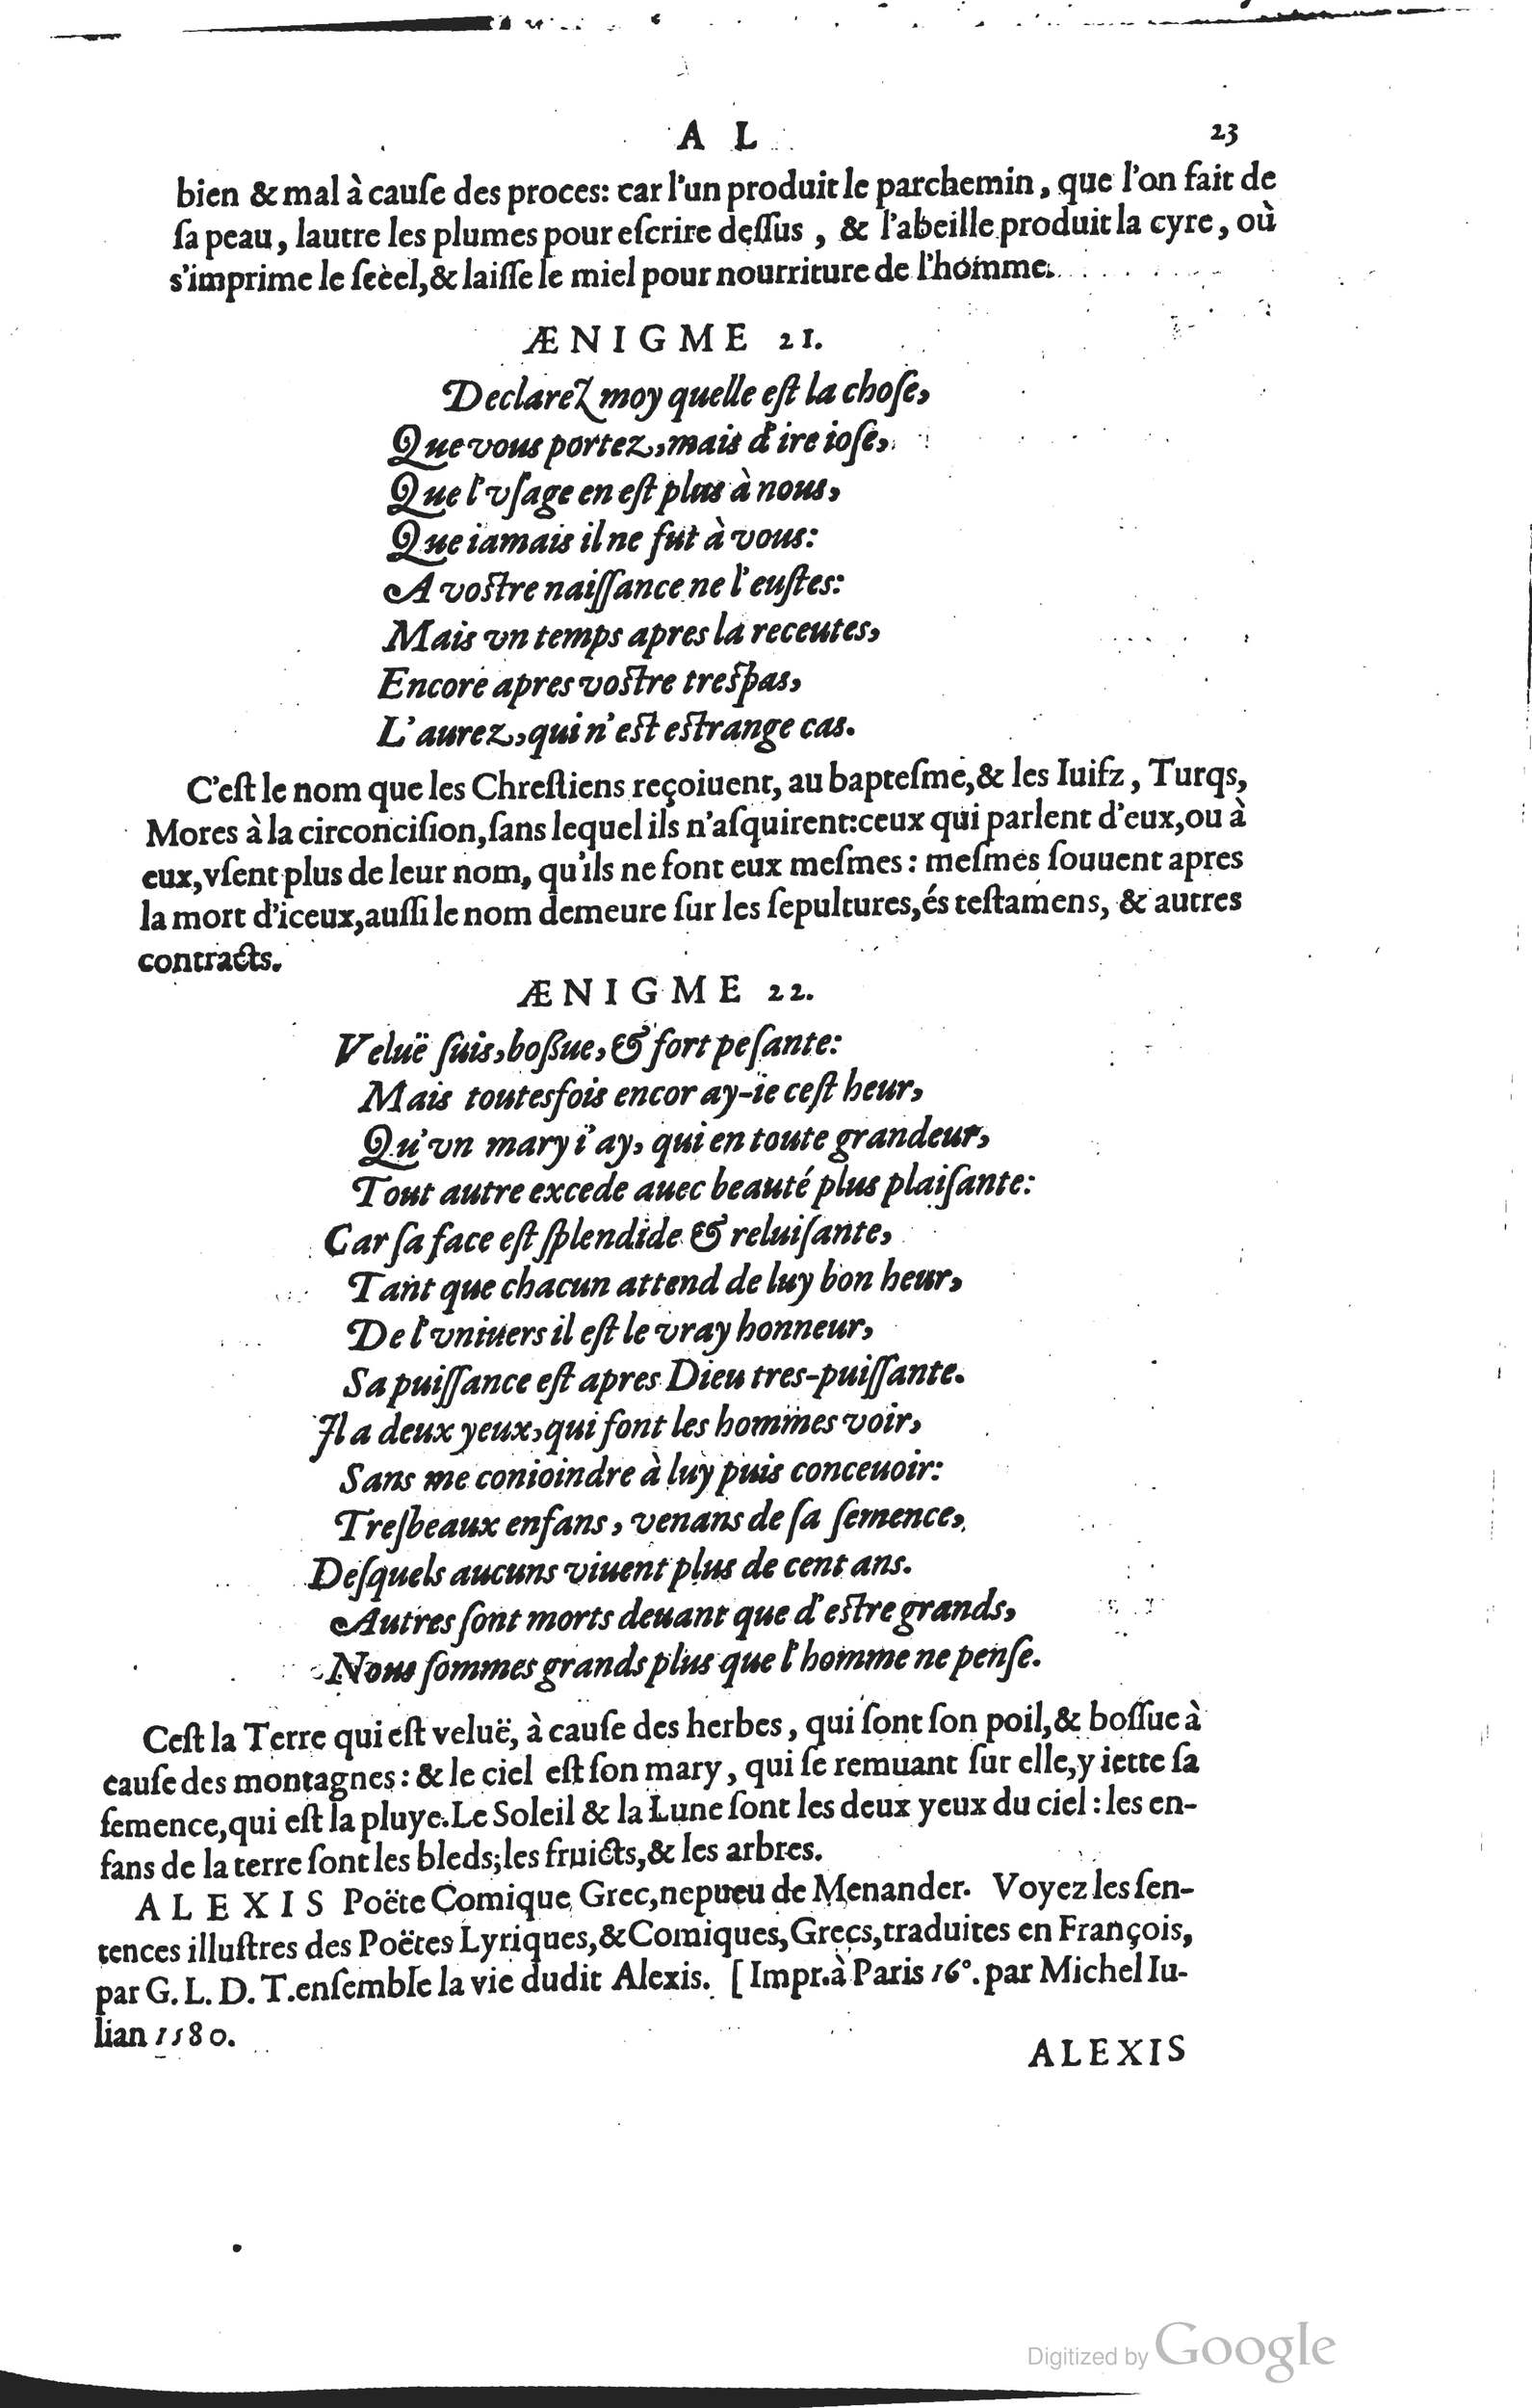 A L 23
bien & mal à cauſe des proces: car l'un produit le parchemin, que l'on fait de
ſa peau, lautre les plumes pour eſcrire deſſus, & l'abeille produit la cyre, où
s'imprime le ſeèel, & laiſſe le miel pour nourriture de l'homme.
ÆNIGME 21.
Declarez moy quelle eſt la choſe,
Que vous portez, mais d'ire ioſe,
Que l'vſage en eſt plus à nous,
Que iamais il ne fut à vous:
A voſtre naiſſance ne l'euſtes:
Mais vn temps apres la receutes,
Encore apres voſtre treſpas,
L'aurez, qui n'eſt eſtrange cas.
C'eſt le nom que les Chreſtiens reçoiuent, au bapteſme, & les Iuifz, Turqs,
Mores à la circonciſion, ſans lequel ils n'aſquirent: ceux qui parlent d'eux, ou à
eux, vſent plus de leur nom, qu'ils ne font eux meſmes: meſmes ſouuent apres
la mort d'iceux, auſſi le nom demeure ſur les ſepultures, és teſtamens, & autres
contracts.
ÆNIGME 22.
Veluë ſuis, boſſue, & fort peſante:
Mais toutesfois encor ay-ie ceſt heur,
Qu'vn mary i'ay, qui en toute grandeur,
Tout autre excede auec beauté plus plaiſante:
Car ſa face eſt ſplendide & reluiſante,
Tant que chacun attend de luy bon heur,
De l'vniuers il eſt le vray honneur,
Sa puiſſance eſt apres Dieu tres-puiſſante.
Il a deux yeux, qui font les hommes voir,
Sans me conioindre à luy puis conceuoir:
Treſbeaux enfans, venans de ſa ſemence,
Deſquels aucuns viuent plus de cent ans.
Autres ſont morts deuant que d'eſtre grands,
Nous ſommes grands plus que l'homme ne penſe.
Ceſt la Terre qui eſt veluë, à cauſe des herbes, qui ſont ſon poil, & boſſue à
cauſe des montagnes: & le ciel eſt ſon mary, qui ſe remuant ſur elle, y iette ſa
ſemence, qui eſt la pluye. Le Soleil & la Lune ſont les deux yeux du ciel: les en-
fans de la terre ſont les bleds; les fruicts, & les arbres.
ALEXIS Poëte Comique Grec, nepueu de Menander. Voyez les ſen-
tences illuſtres des Poëtes Lyriques, & Comiques, Grecs, traduites en François,
par G. L. D. T. enſemble la vie dudit Alexis. [Impr. à Paris 16°. par Michel Iu-
lian 1580.
ALEXIS
Digitized by Google